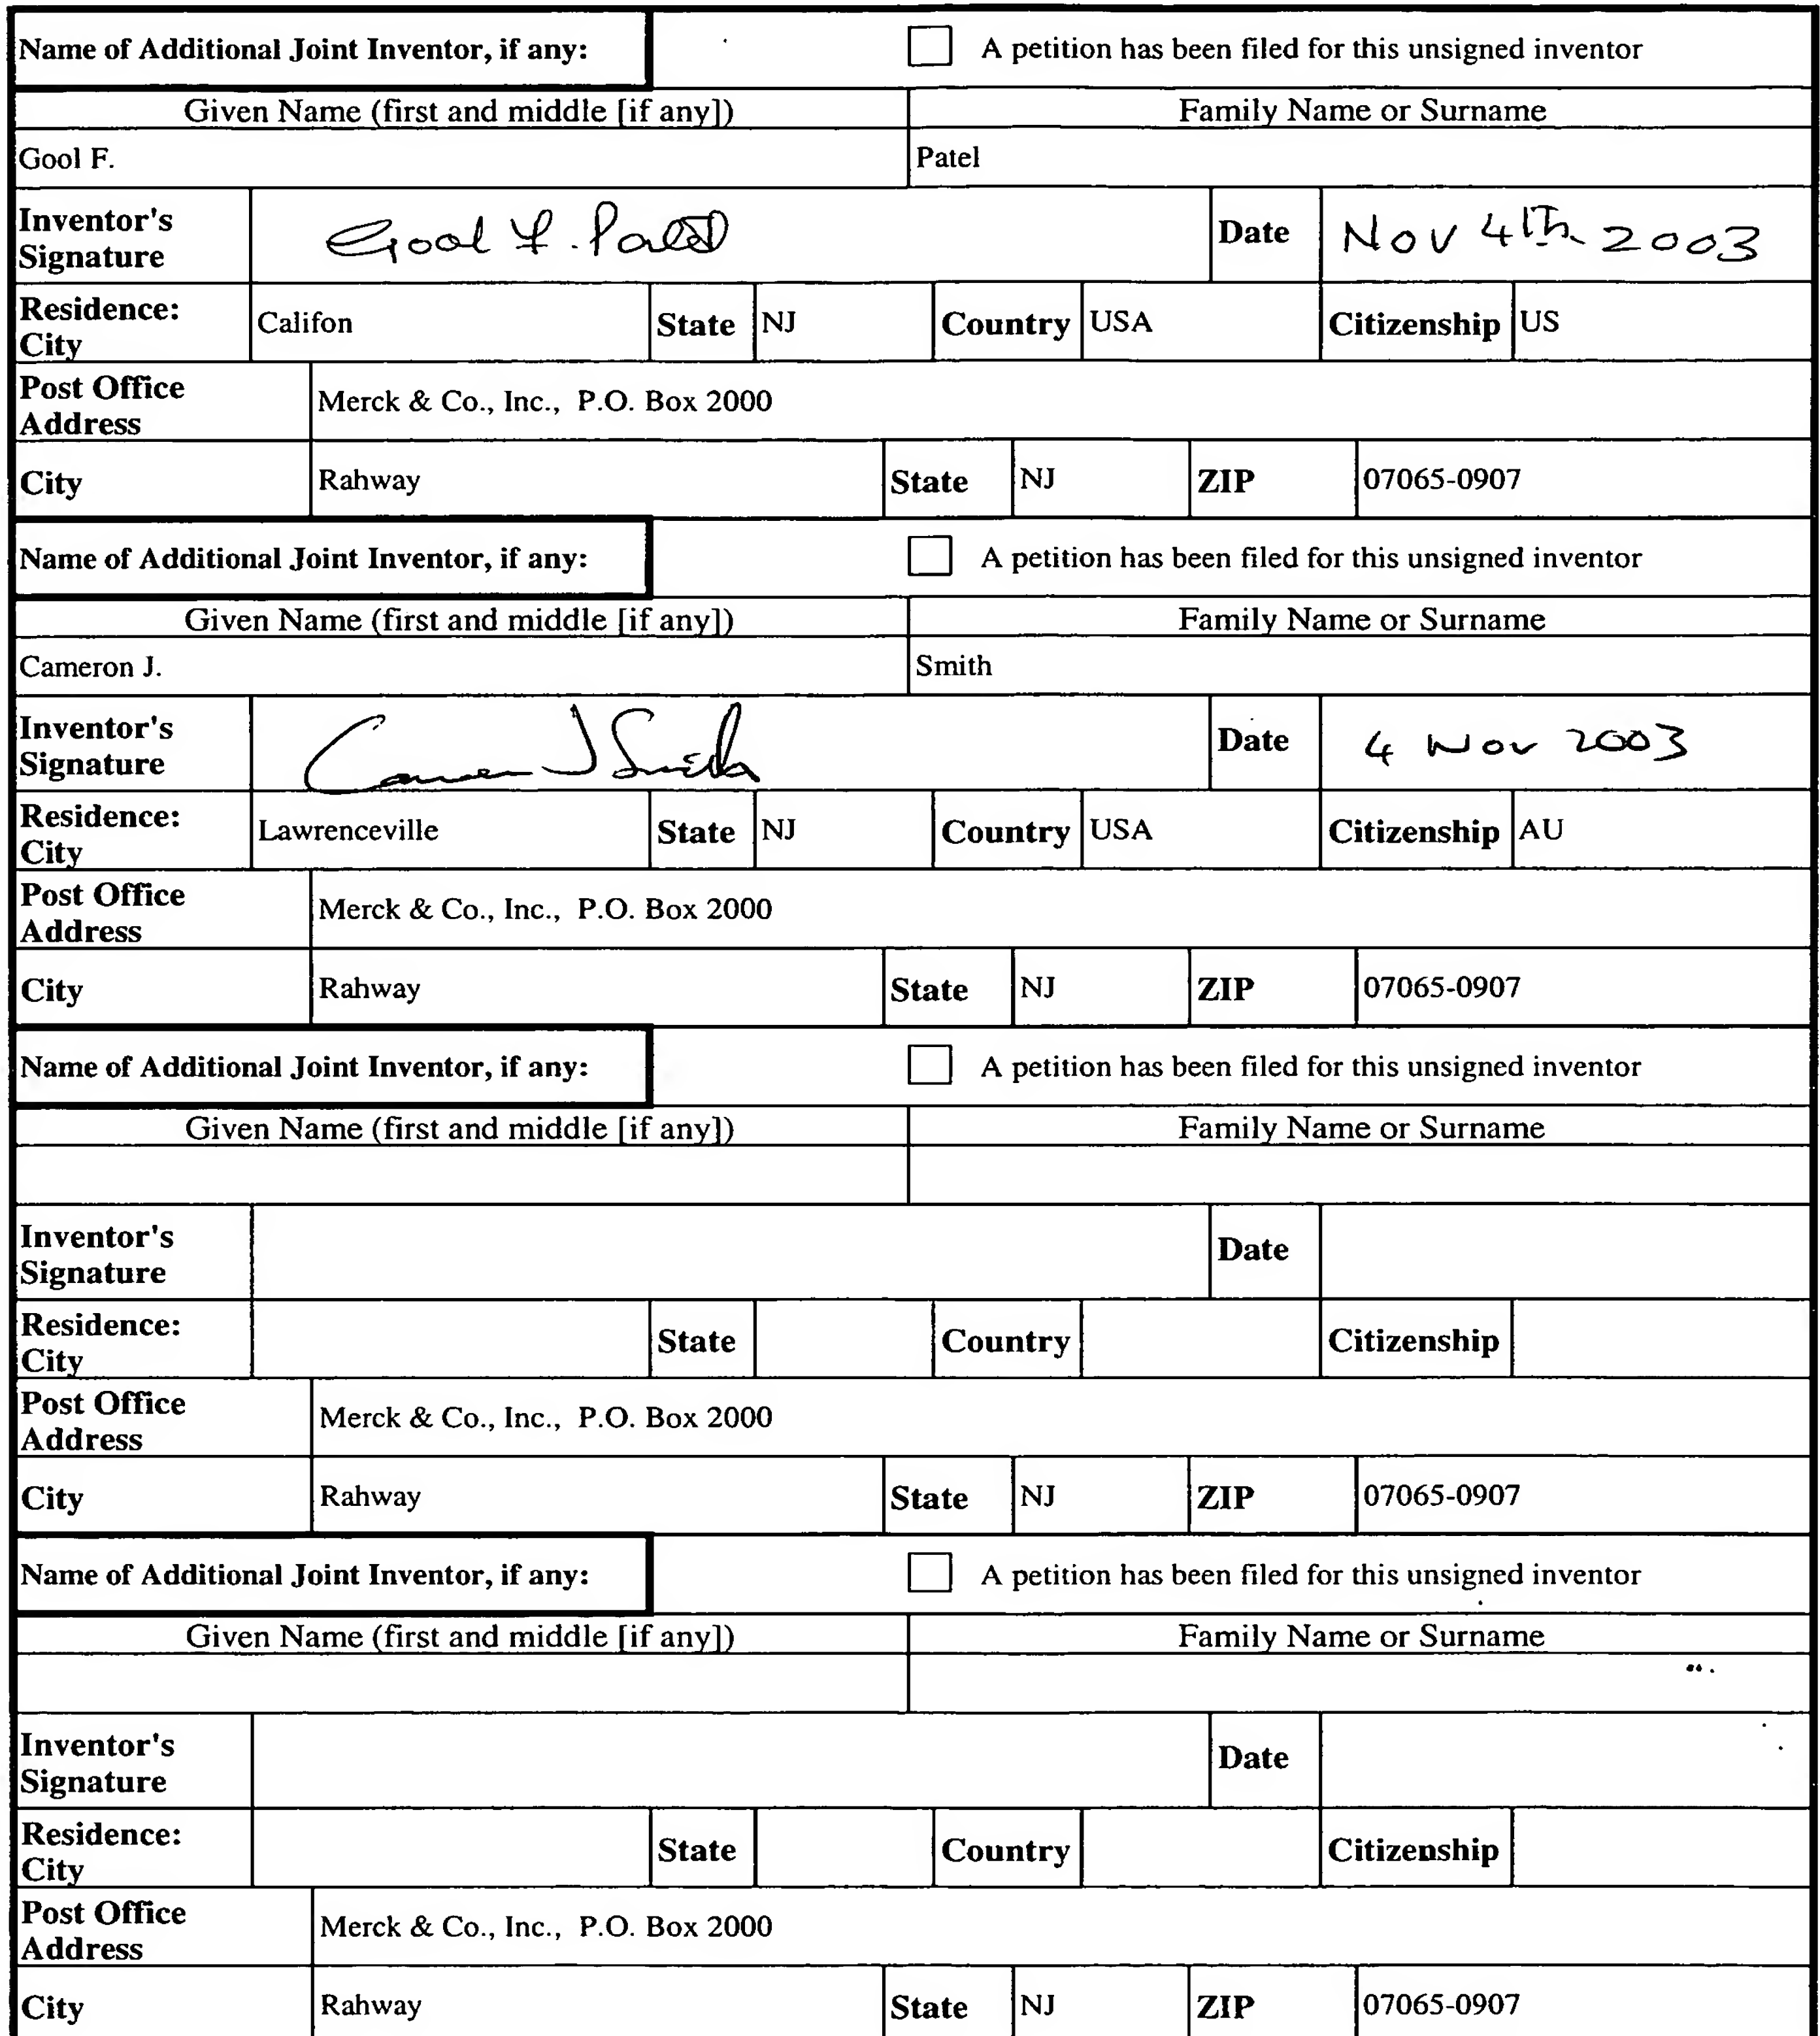 Name of Additional Joint Inventor, if any: A petition has been filed for this unsigned inventor
Given Name (first and middle [if any]) Family Name or Surname
Gool F. Patel
Inventor's Signature Gool F. Patel Date Nov 4th 2003
Residence: City Califon State NJ Country USA Citizenship US
Post Office Address Merck & Co., Inc., P.O. Box 2000
City Rahway State NJ ZIP 07065-0907
Name of Additional Joint Inventor, if any: A petition has been filed for this unsigned inventor
Given Name (first and middle [if any]) Family Name or Surname
Cameron J. Smith
Inventor's Signature Cameron J Smith Date 4 Nov 2003
Residence: City Lawrenceville State NJ Country USA Citizenship AU
Post Office Address Merck & Co., Inc., P.O. Box 2000
City Rahway State NJ ZIP 07065-0907
Name of Additional Joint Inventor, if any: A petition has been filed for this unsigned inventor
Given Name (first and middle [if any]) Family Name or Surname
Inventor's Signature Date
Residence: City State Country Citizenship
Post Office Address Merck & Co., Inc., P.O. Box 2000
City Rahway State NJ ZIP 07065-0907
Name of Additional Joint Inventor, if any: A petition has been filed for this unsigned inventor
Given Name (first and middle [if any]) Family Name or Surname
Inventor's Signature Date
Residence: City State Country Citizenship
Post Office Address Merck & Co., Inc., P.O. Box 2000
City Rahway State NJ ZIP 07065-0907